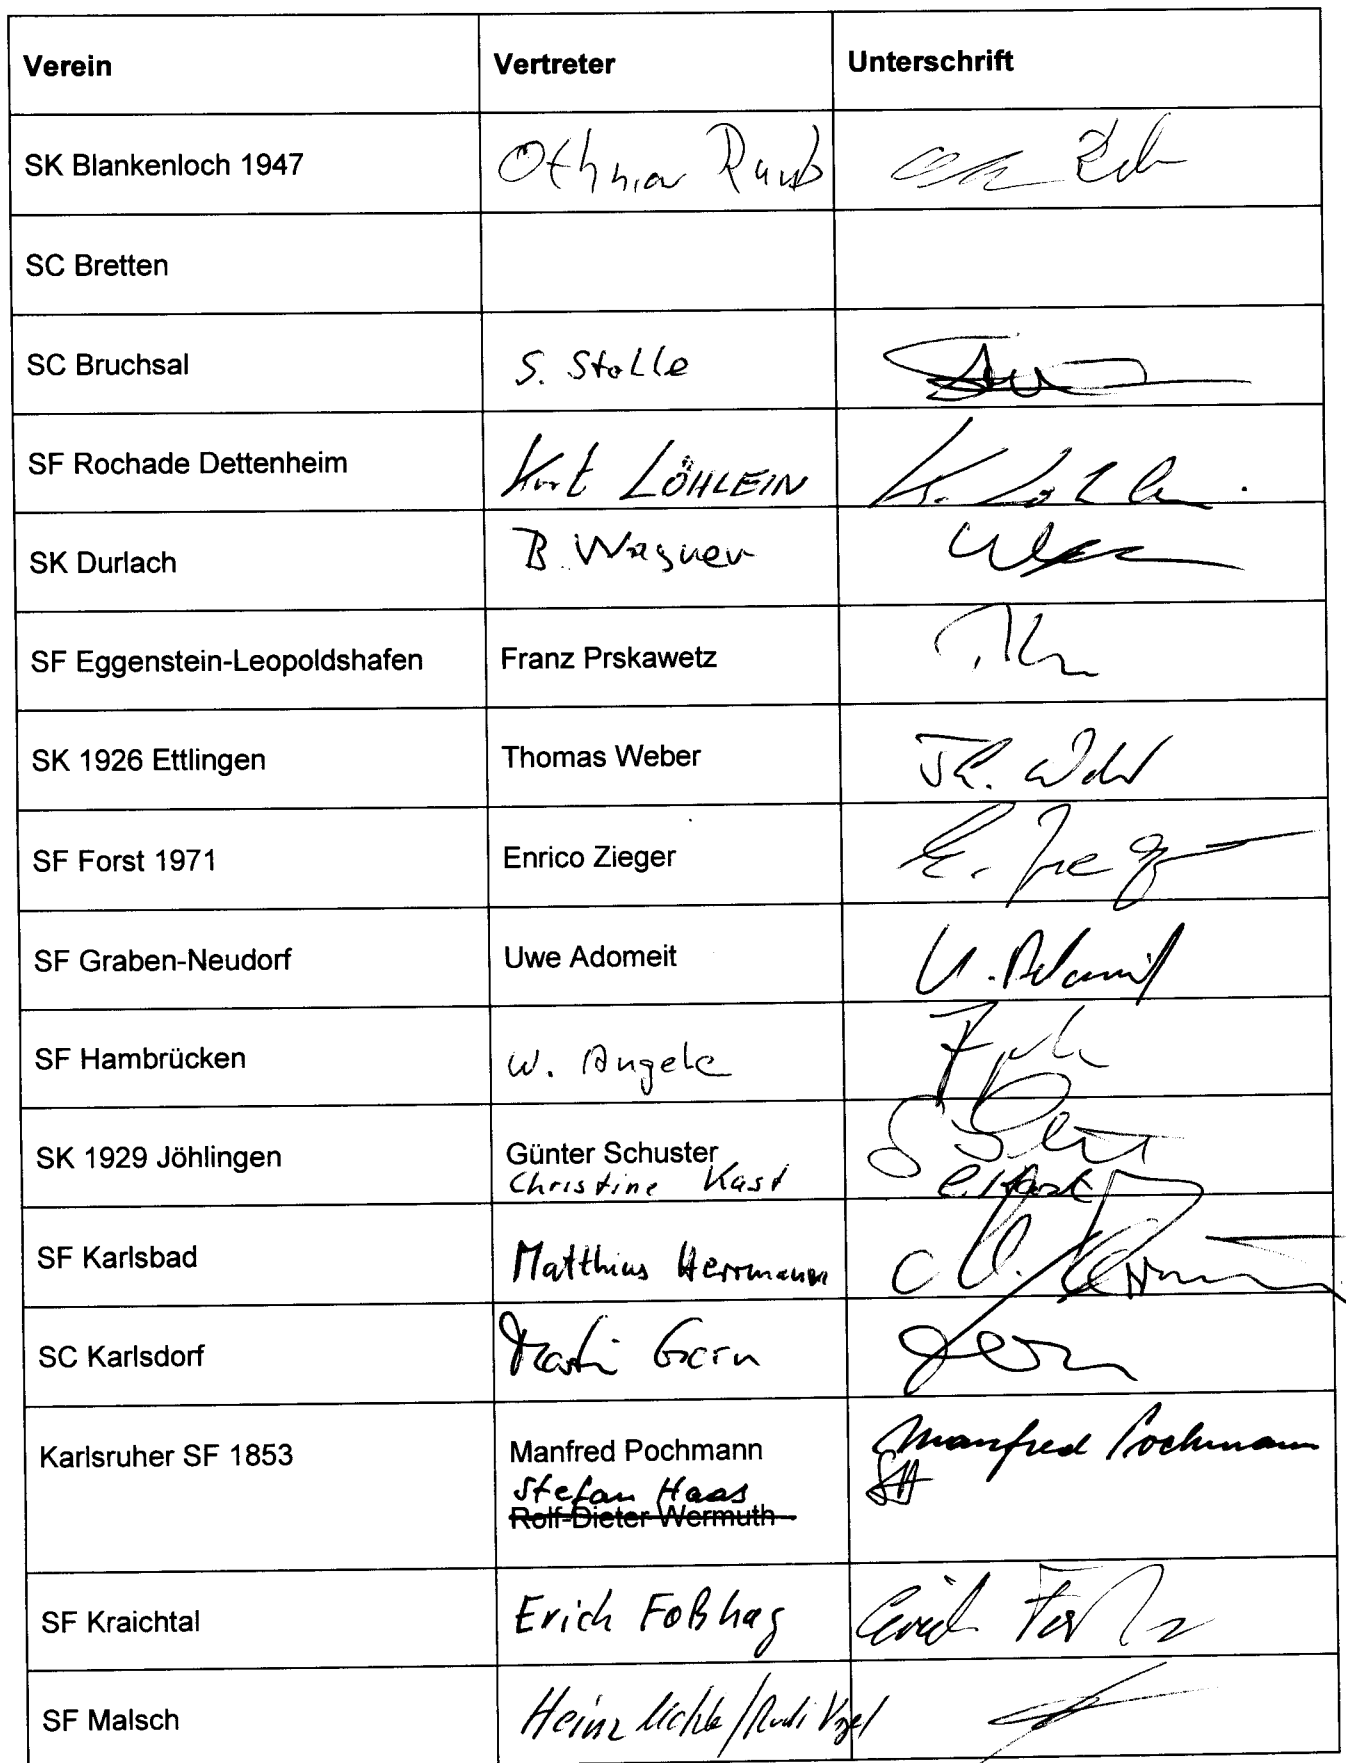 Verein Vertreter Unterschrift
SK Blankenloch 1947 Othmar Raub
SC Bretten
SC Bruchsal S. Stolle
SF Rochade Dettenheim Kurt LÖHLEIN
SK Durlach B. Wagner
SF Eggenstein-Leopoldshafen Franz Prskawetz
SK 1926 Ettlingen Thomas Weber Th. Weber
SF Forst 1971 Enrico Zieger E. Zieger
SF Graben-Neudorf Uwe Adomeit U. Adomeit
SF Hambrücken W. Angele
SK 1929 Jöhlingen Günter Schuster
Christine Kast C. Kast
SF Karlsbad Matthias Herrmann M. Herrmann
SC Karlsdorf Martin Gern Gern
Karlsruher SF 1853 Manfred Pochmann Manfred Pochmann
Stefan Haas SH
Rolf-Dieter Wermuth
SF Kraichtal Erich Foßhag Erich
SF Malsch Heinz / Rudi Vogel